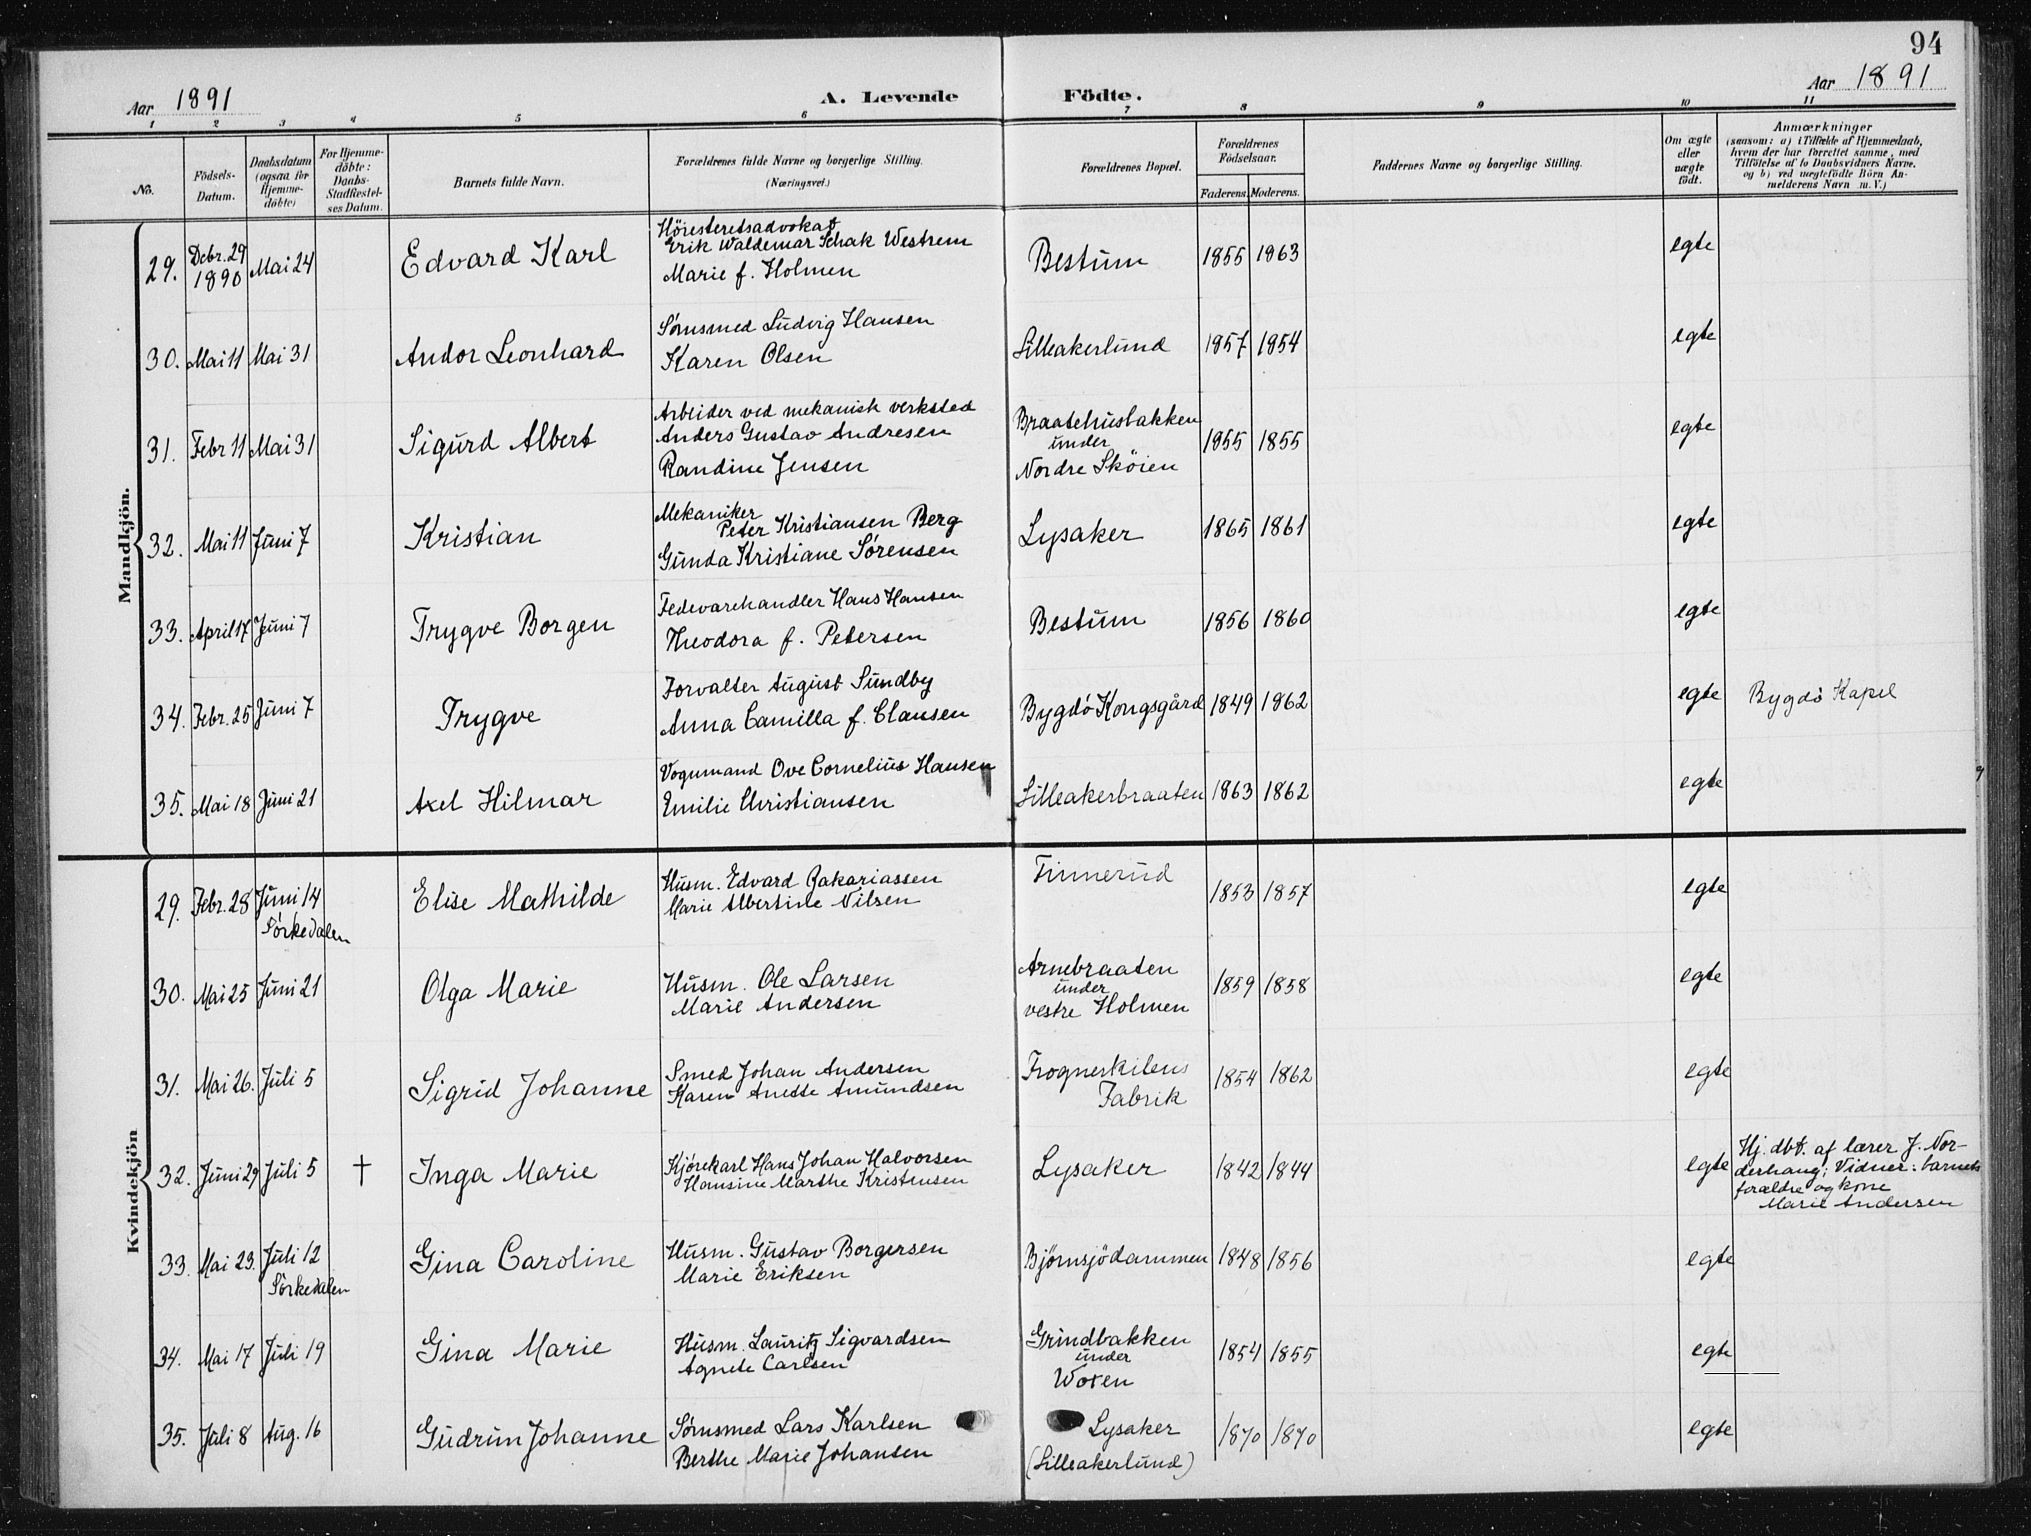 94
Aar 1891
A. Levende
Födte.
Aar 1891
1 2 3 4 5 6 7 8 9 10 11
No.
Födsels-
Datum.
Daabsdatum
(ogsaa for
Hjemme-
döbte)
For Hjemme-
döbte:
Daabs-
Stadfæstel-
ses Datum.
Barnets fulde Navn.
Forældrenes fulde Navne og borgerlige Stilling.
(Næringsvei.)
Forældrenes Bopæl.
Forældrenes
Födselsaar.
Faderens. Moderens.
Faddernes Navne og borgerlige Stilling.
Om ægte
eller
uægte
födt.
Anmærkninger
(saasom: a) i Tilfælde af Hjemmedaab,
hvem der har forrettet samme, med
Tilföielse af to Daabsvidners Navne,
og b) ved uægtefödte Börn An-
melderens Navn m. V.)
Mandkjön.
29. Debr. 29 1890 Mai 24 Edvard Karl
Höiesteretsadvokat
Erik Waldemar Schak Westrem
Marie f. Holmen
Bestum 1855 1863 egte
30. Mai 11 Mai 31 Andor Leonhard
Sømsmed Ludvig Hansen
Karen Olsen
Lilleakerlund 1857 1854 egte
31. Febr 11 Mai 31 Sigurd Albert
Arbeider ved mekanisk verksted
Anders Gustav Andresen
Randine Jensen
Braatehusbakken
under
Nordre Sköien
1855 1855 egte
32. Mai 11 Juni 7 Kristian
Mekaniker
Peter Kristiansen Berg
Gunda Kristiane Sørensen
Lysaker 1865 1861 egte
33. April 17 Juni 7 Trygve Borgen
Fedevarehandler Hans Hansen
Theodora f. Petersen
Bestum 1856 1860 egte
34. Febr. 25 Juni 7 Trygve
Forvalter August Sundby
Anna Camilla f. Clausen
Bygdö Kongsgård 1849 1862 egte Bygdö Kapel
35. Mai 18 Juni 21 Axel Hilmar
Vognmand Ove Cornelius Hansen
Emilie Christiansen
Lilleakerbraaten 1863 1862 egte
Kvindekjön
29. Febr. 28 Juni 14
Sörkedalen
Elise Mathilde
Husm. Edvard Zakariassen
Marie Albertine Nilsen
Finnerud 1853 1857 egte
30. Mai 25 Juni 21 Olga Marie
Husm. Ole Larsen
Marie Andersen
Arnebraaten
under
vestre Holmen
1859 1858 egte
31. Mai 26. Juli 5 Sigrid Johanne
Smed Johan Andersen
Karen Anette Amundsen
Frognerkilens
Fabrik
1854 1862 egte
32. Juni 29 Juli 5 † Inga Marie
Kjørekarl Hans Johan Halvorsen
Hansine Marthe Kristensen
Lysaker 1842 1844 egte
Hj. dbt. af lærer J. Nor-
derhaug; Vidner: barnets
forældre og kone
Marie Andersen
33. Mai 23. Juli 12
Sörkedalen
Gina Caroline
Husm. Gustav Borgersen
Marie Eriksen
Bjørnsjödammen 1848 1856 egte
34. Mai 17 Juli 19 Gina Marie
Husm. Lauritz Sigvardsen
Agnete Carlsen
Grindbakken
under
Woxen
1854 1855 egte
35. Juli 8 Aug. 16 Gudrun Johanne
Sømsmed Lars Karlsen
Berthe Marie Johansen
Lysaker
(Lilleakerlund)
1870 1870 egte